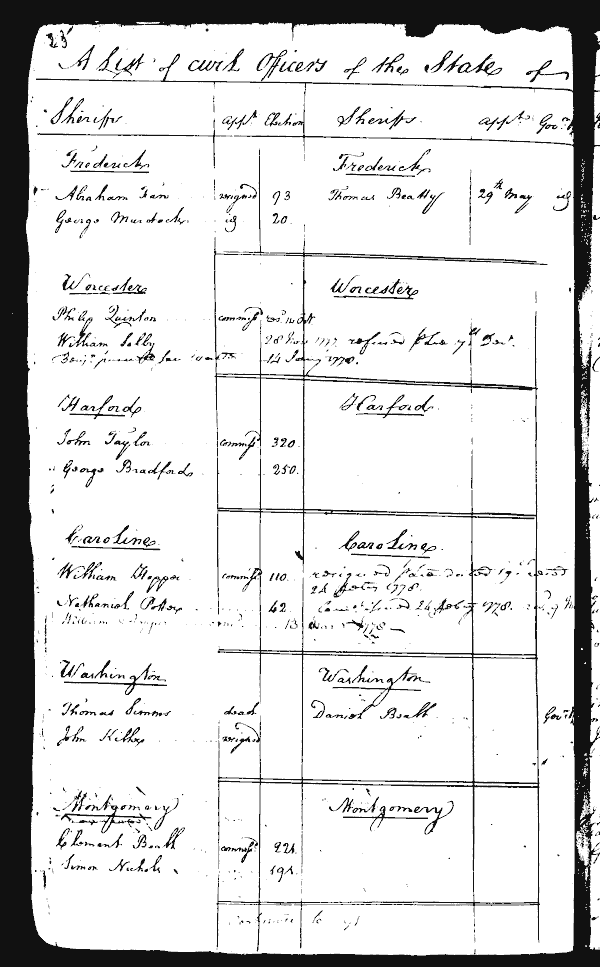 25
A List of Civil Officers of the State of
Sheriffs appt. Election Sheriffs. appt. Govr.
Frederick Frederick
Abraham Faw resigned 93 Thomas Beatty 29th May
George Murdock 20.
Worcester Worcester
Philip Quinton commissd
William Selby 28 Nov 1777 refused
14 Jany 1778.
Harford Harford
John Taylor commissd 320
George Bradford 250.
Caroline Caroline.
William Hopper commissd 110. resigned
24 Feby 1778.
Nathaniel Potter 42. 24 Feby 1778.
13 1778
Washington Washington
Thomas Simms dead Daniel Beall Govr.
John Kelke resigned
Montgomery Montgomery
Clement Beall commissd 221
Simon Nichols 191